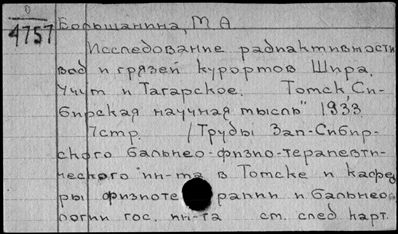 0
4757
Большанина, М А
Исследование радиактивности
вод и грязей курортов Шира,
Учум и Тагарское. Томск, „Си-
бирская научная мысль" 1933
7стр. /Труды Зап-Сибир-
ского бальнео-физио-терапевти-
ческого ин-та в Томске и кафед
ры физиоте рапии и бальнео-
логии гос. ин-та см. след карт.